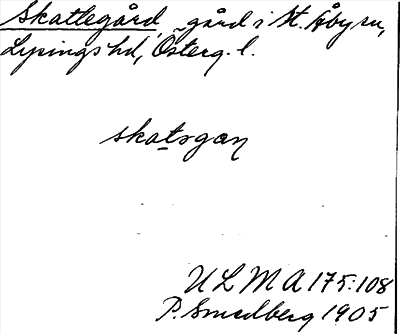 Skattegård, gård i St. Åby sn,
Lysings hd, Österg. l.
skatsgan
ULMA 175:108
P. Smedberg 1905